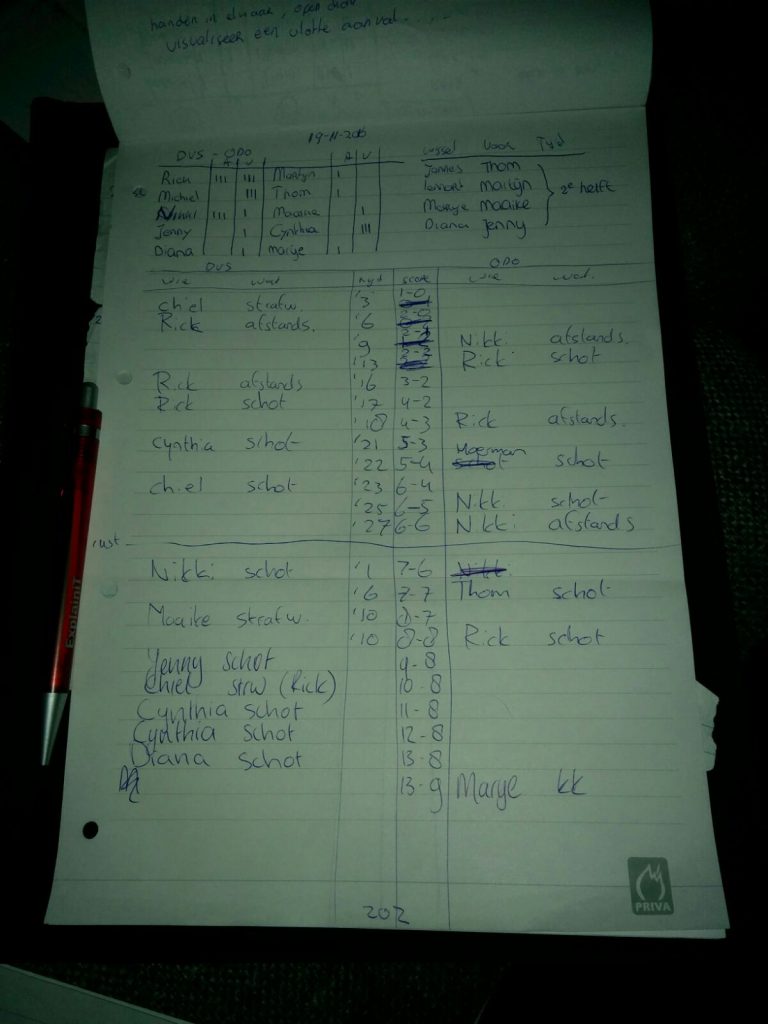 handen in elkaar, open
visualiseer een vlotte aanval....
19-11-2016
DVS - ODO Wissel Voor Tyd
A V A V
Rick III III Martyn I Jannes Thom
Michiel III Thom I Lennart Martyn 2e helft
Nikki III I Maaike I Marye Maaike
Jenny I Cynthia III Diana Jenny
Diana I Marye I
DVS ODO
wie wat tyd score wie wat.
chiel strafw. '3 1-0
Rick afstands. '6 2-0
'9 Nikki afstands.
'13 2-2 Rick schot
Rick afstands '16 3-2
Rick schot '17 4-2
'18 4-3 Rick afstands.
Cynthia schot '21 5-3
'22 5-4 Moerman schot
chiel schot '23 6-4
'25 6-5 Nikki schot
'27 6-6 Nikki afstands
rust
Nikki schot '1 7-6 Nikki
'6 7-7 Thom schot
Maaike strafw. '10 8-7
'10 8-8 Rick schot
Jenny schot 9-8
chiel strw (Rick) 10-8
Cynthia schot 11-8
Cynthia schot 12-8
Diana schot 13-8
13-9 Marye kk
202
PRIVA
Explainit